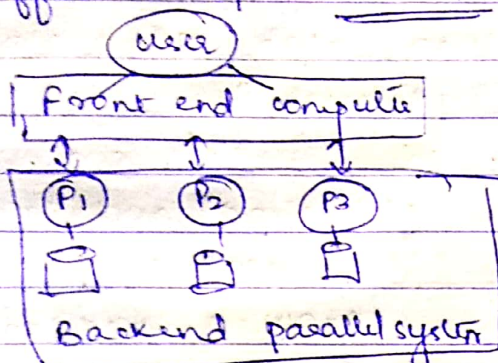 user
Front end computer
P1 P2 P3
Backend parallel system